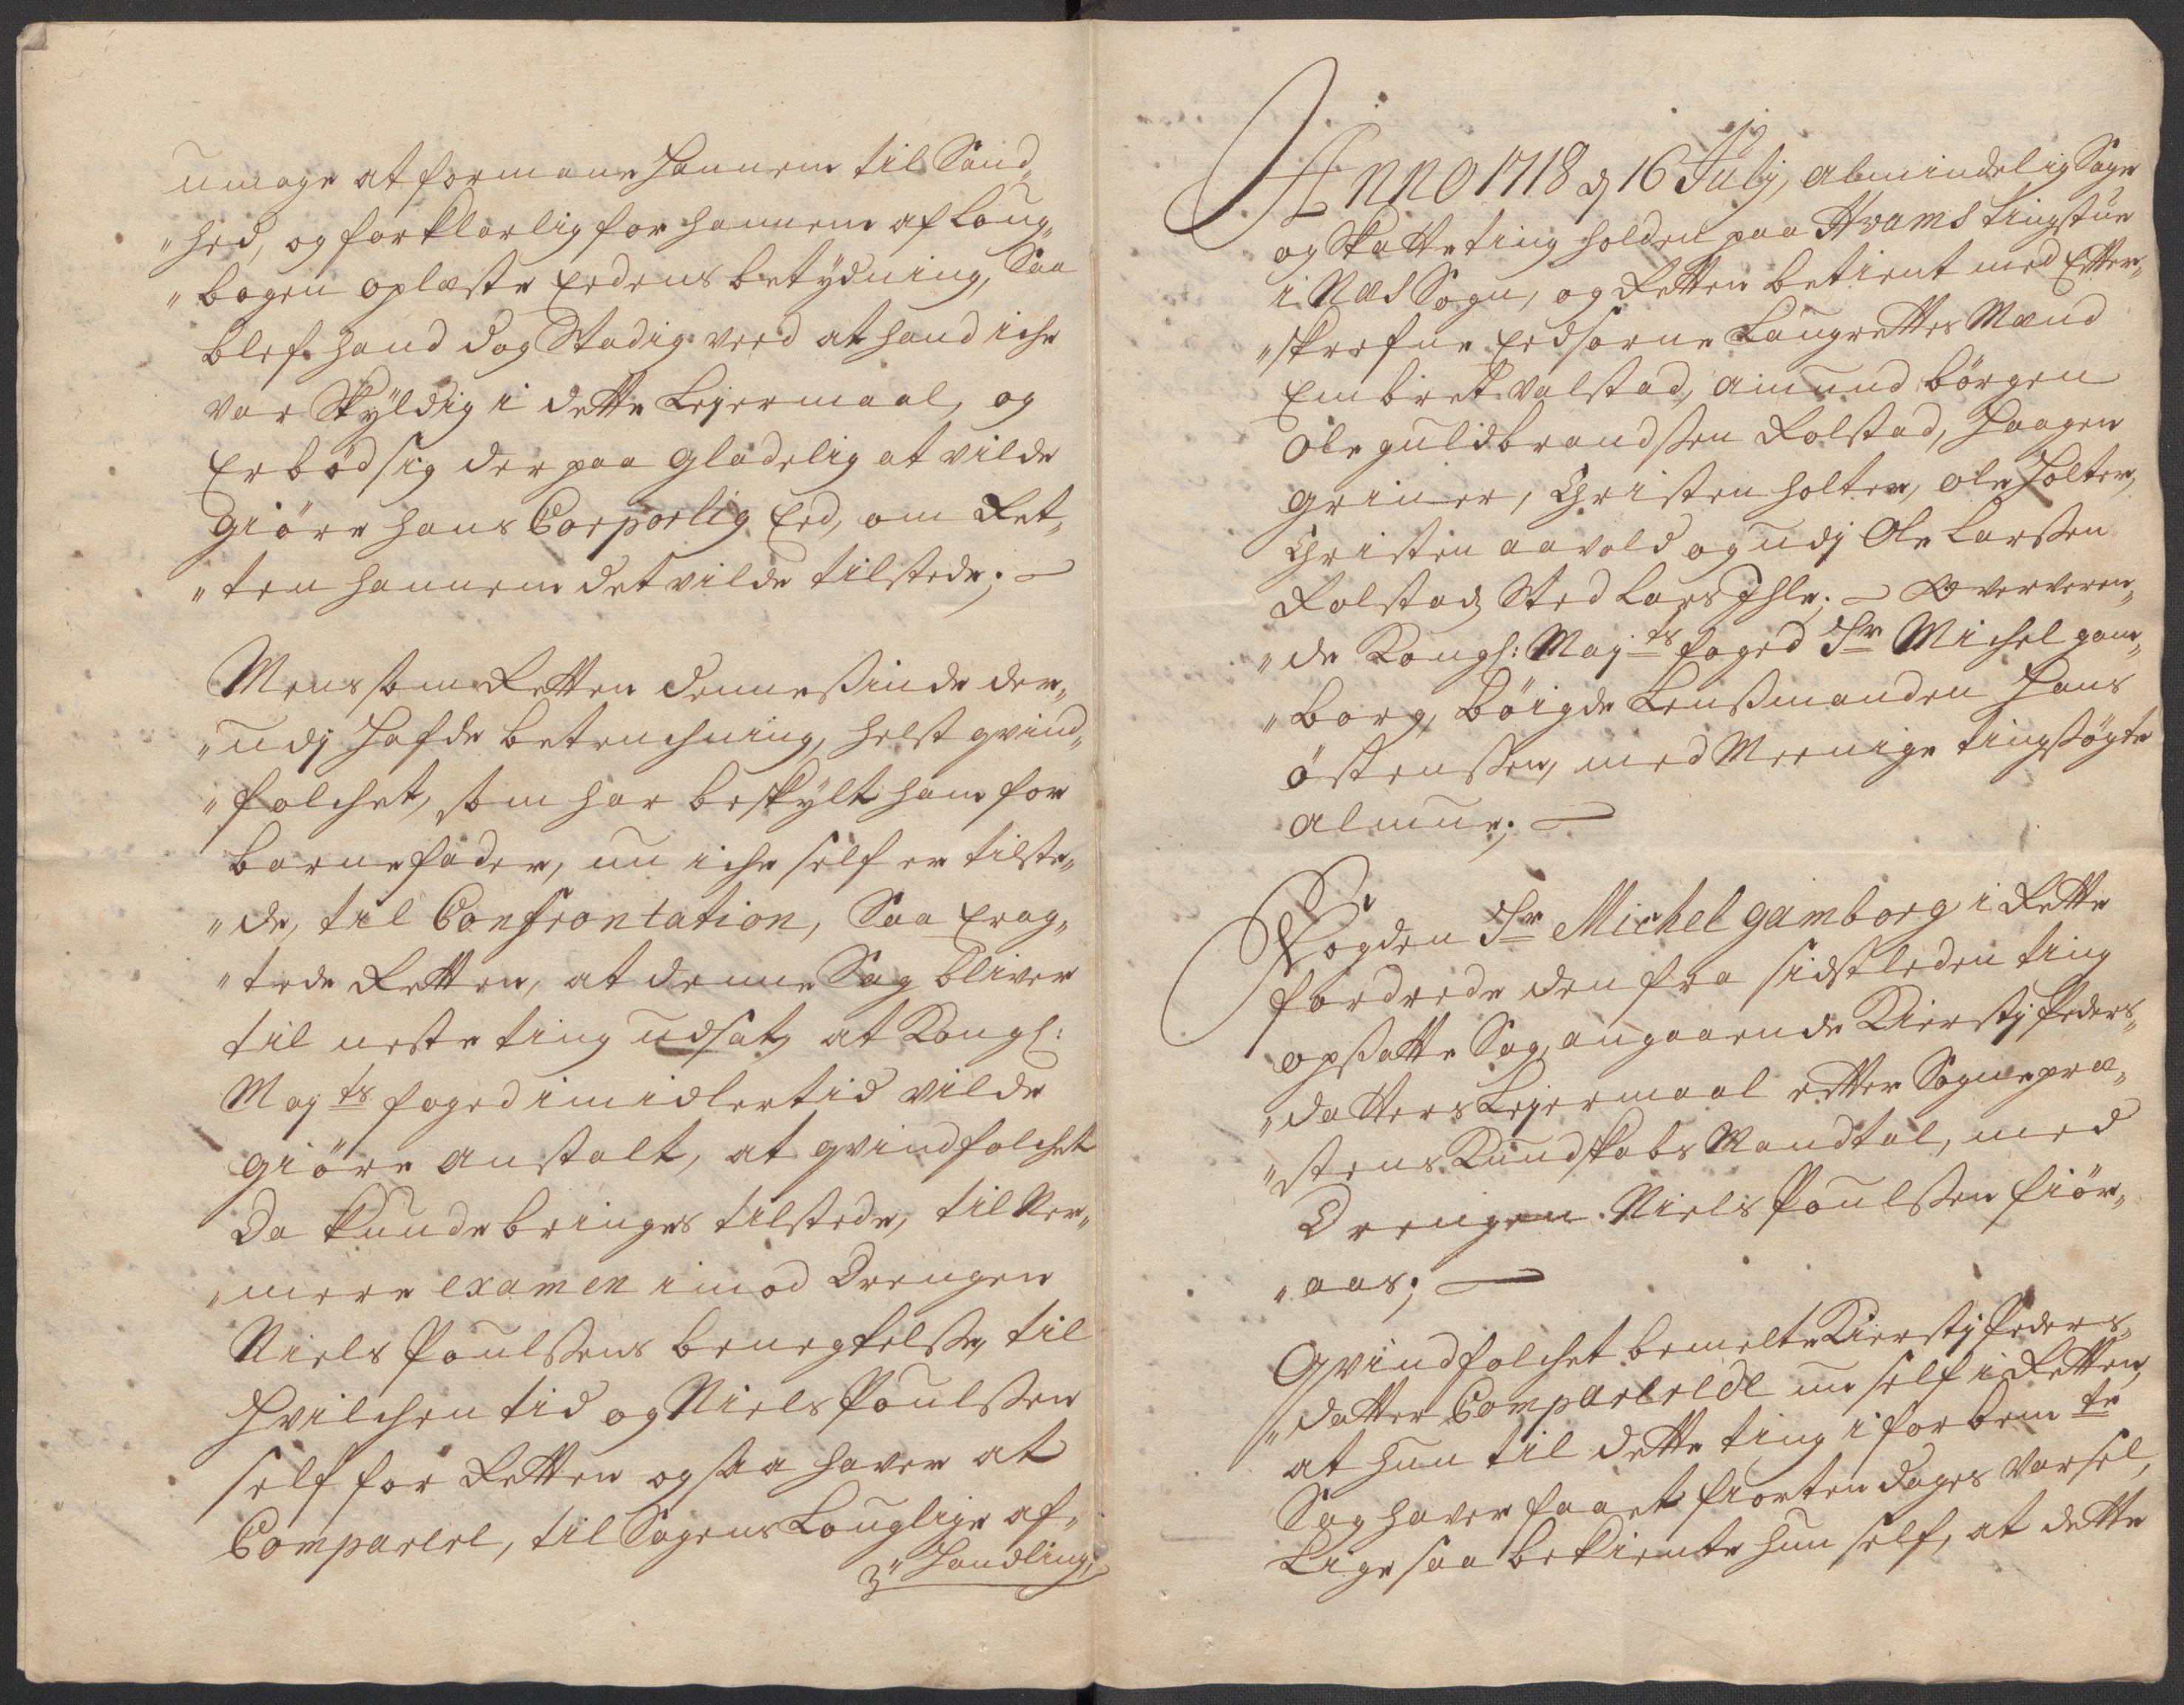 umage at formane hannem til Sand„
„hed, og forklarlig for hannem af Loug„
„bogen oplæste Eedens betydning, Saa
blef hand dog Stadig veed at hand iche
var Skyldig i dette Lejermaal, og
Erbød sig der paa gladelig at vilde
giøre hans Corporlig Eed, om Ret„
„ten hannem det vilde tilstede; –
Mens som Retten dennesinde der„
„udj Hafde betenchning, helst qvind„
„folchet, som har beskylt ham for
barnefader, nu iche self er tilste„
„de, til Confrontation, Saa Erag„
„tede Retten, at denne Sag bliver
til neste ting udsat, at Kongl:
Majts foged imidlertid vilde
giøre anstalt, at qvindfolchet
Da kunde bringes tilstede, til Ner„
„mere examen imod Drengen
Niels Poulsens benegtelse, til
Hvilchen tid og Niels Poulsen
self for Retten og saa haver at
Comparere, til Sagens Louglige af„
„Handling;
Anno 1718 d 16 Julij, almindelig Sage
og Skatteting holden paa Hvams tingstue
i Næs Sogn, og Retten betient med Efter„
„skrefne Eedsorne Laugrettes Mænd
Embret Valstad, Amund børgen
Ole guldbrandsen Rolstad, Haagen
griner, Christen holter, Ole Holter,
Christen aavold og udj Ole Larsen
Rolstads Sted Lars Ihle; – Oververen„
„de Kongl: Majts foged Sr Michel gam„
„borg, Bøigde Lensmanden Hans
østensen, med Meenige tingsøgte
almue; –
Fogden Sr Michel gamborg i Rette
fordrede den fra sidstleden ting
opsatte Sag, angaaende Kierstj Peders„
„datters Lejermaal efter Sognepræ„
„stens Kundskabs Mandtal, med
Drengen Niels Poulsen fiør„
„aas; –
Qvindfolchet bemelte Kierstj Peders„
„datter Comparerede nu self i Retten,
at hun til dette ting i forbemte
Sag haver faaet fiorten dages Varsel,
Lige saa bekiente hun self, at dette